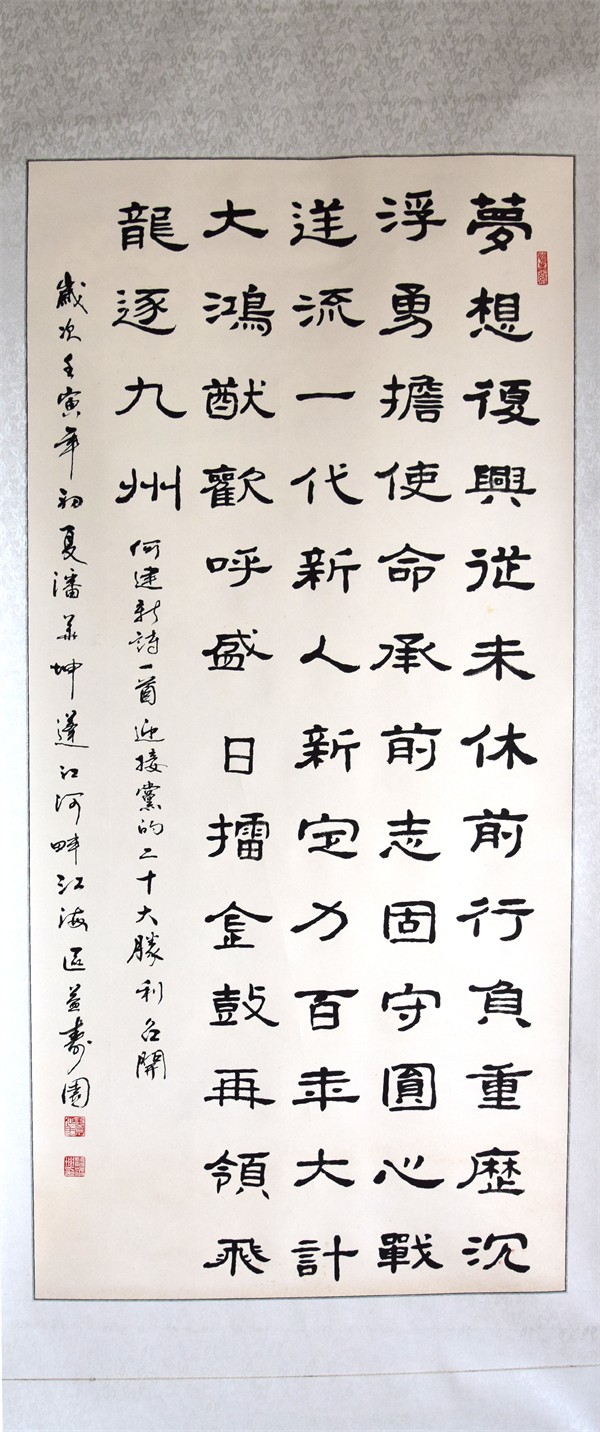 夢想復興從未休前行負重歷沉
浮勇擔使命承前志固守圓心戰
逆流一代新人新定力百年大計
大鴻猷歡呼盛日擂金鼓再領飛
龍逐九州
何建新詩一首迎接黨的二十大勝利召開
歲次壬寅年初夏潘業坤蓬江河畔江海區益壽園